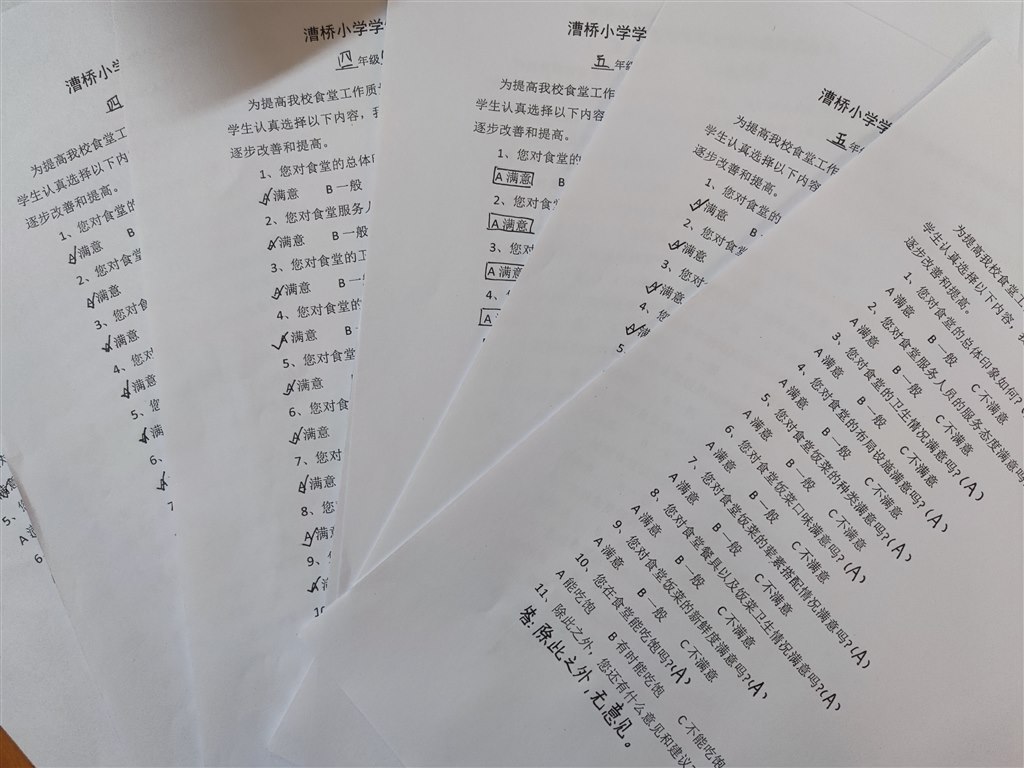 漕桥小学
四
为提高我校食堂工
学生认真选择以下内
逐步改善和提高。
1、您对食堂的
A满意 B
2、您对食
A满意
3、您对食
A满意
4、您对
A满意
5、您
A满
6、
A
7
5、
A
6
漕桥小学学
四年级
为提高我校食堂工作质
学生认真选择以下内容，我
逐步改善和提高。
1、您对食堂的总体
A满意 B一般
2、您对食堂服务人
A满意 B一般
3、您对食堂的卫
A满意 B一
4、您对食堂的
A满意 B
5、您对食堂
A满意
6、您对食
A满意
7、您对
A满意
8、您
A满意
9、
A满
10
漕桥小学学
五年级
为提高我校食堂工作
学生认真选择以下内容
逐步改善和提高。
1、您对食堂的
A 满意 B
2、您对食
A 满意
3、您对
A 满意
4、
A
漕桥小学
五年
为提高我校食堂工作
学生认真选择以下内容
逐步改善和提高。
1、您对食堂的
A满意
2、您对食堂
A满意
3、您对
A满意
4、您
A满
5
为提高我校食堂工
学生认真选择以下内容，
逐步改善和提高。
1、您对食堂的总体印象如何？
A 满意 B 一般 C 不满意
2、您对食堂服务人员的服务态度满意吗
A 满意 B 一般 C 不满意
3、您对食堂的卫生情况满意吗？(A)
A 满意 B 一般 C 不满意
4、您对食堂的布局设施满意吗？(A)
A 满意 B 一般 C 不满意
5、您对食堂饭菜的种类满意吗？(A)
A 满意 B 一般 C 不满意
6、您对食堂饭菜口味满意吗？(A)
A 满意 B 一般 C 不满意
7、您对食堂饭菜的荤素搭配情况满意吗？(A)
A 满意 B 一般 C 不满意
8、您对食堂餐具以及饭菜卫生情况满意吗？(A)
A 满意 B 一般 C 不满意
9、您对食堂饭菜的新鲜度满意吗？(A)
A 满意 B 一般 C 不满意
10、您在食堂能吃饱吗？(A)
A 能吃饱 B 有时能吃饱 C 不能吃饱
11、除此之外，您还有什么意见和建议
答：除此之外，无意见。